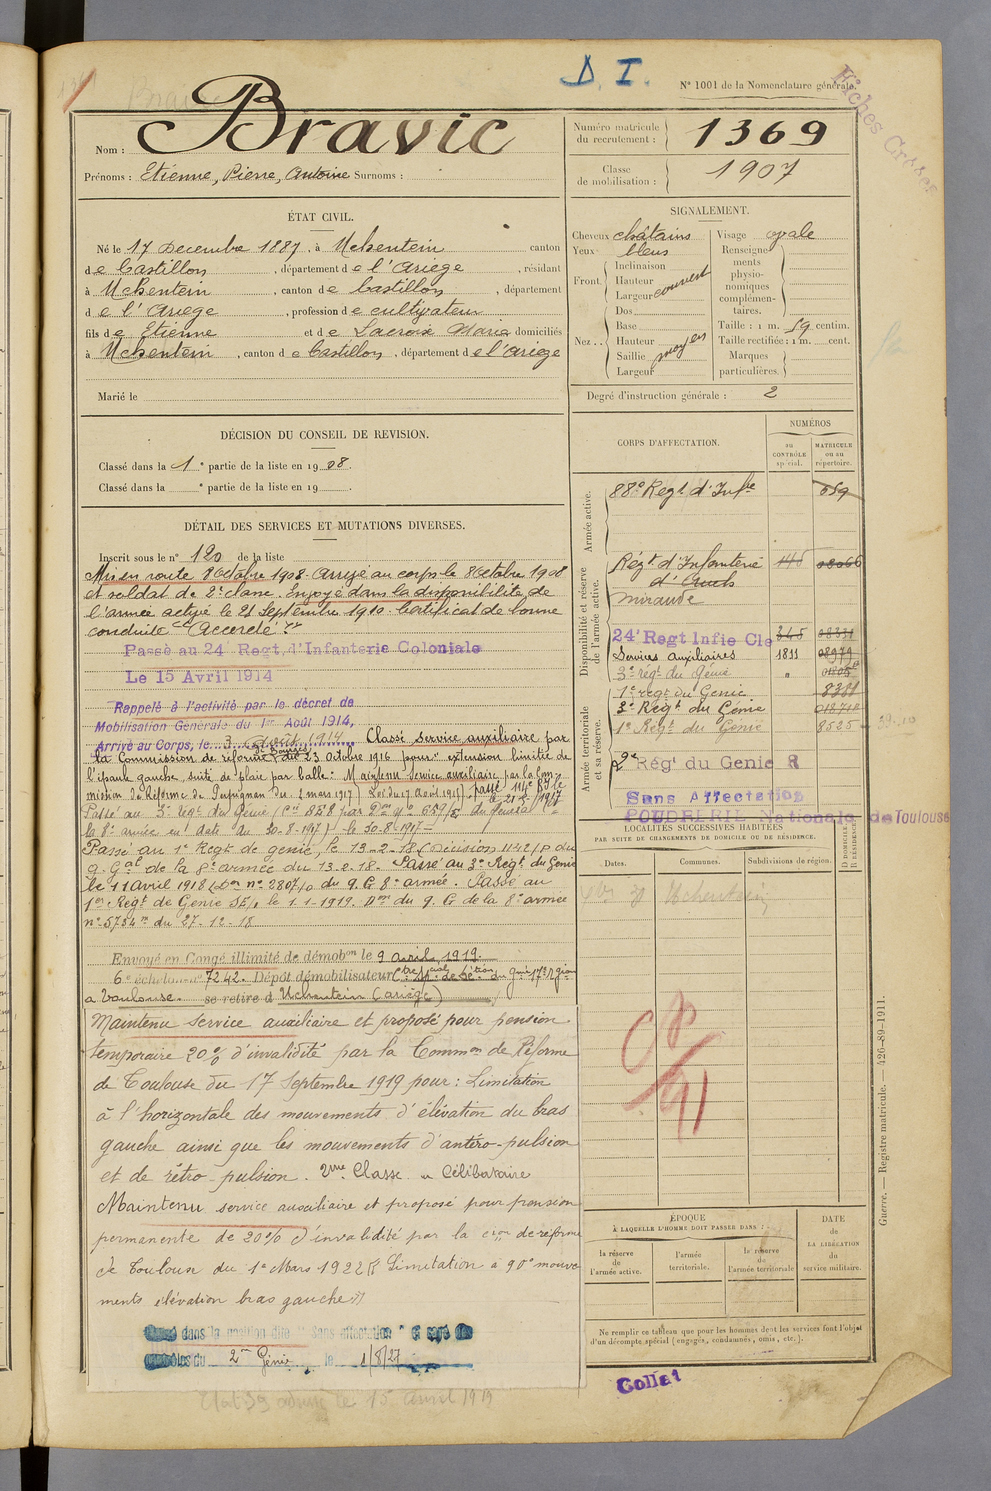 D. I.
N° 1001 de la Nomenclature générale.
Fiches Croses
Nom : Bravic
Prénoms : Etienne, Pierre, Antoine Surnoms :
Numéro matricule du recrutement : 1369
Classe de mobilisation : 1907
ÉTAT CIVIL.
Né le 17 Decembre 1887, à Uchentein canton
de Castillon, département de l'Ariège, résidant
à Uchentein, canton de Castillon, département
de l'Ariège, profession de cultivateur
fils de Etienne et de Lacroix Marie domiciliés
à Uchentein, canton de Castillon, département de l'Ariège
Marié le
SIGNALEMENT.
Cheveux châtains
Yeux bleus
Front
Inclinaison
Hauteur
Largeur couvert
Nez
Dos
Base
Hauteur
Saillie moyen
Largeur
Visage ovale
Renseignements physionomiques complémentaires.
Taille : 1 m. 59 centim.
Taille rectifiée : 1 m. cent.
Marques particulières.
Degré d'instruction générale : 2
DÉCISION DU CONSEIL DE REVISION.
Classé dans la 1e partie de la liste en 1908.
Classé dans la e partie de la liste en 19 .
DÉTAIL DES SERVICES ET MUTATIONS DIVERSES.
Inscrit sous le n° 120 de la liste
Mis en route 8 Octobre 1908. Arrivé au corps le 8 Octobre 1908
et soldat de 2e classe. Envoyé dans la disponibilité de
l'armée active le 25 Septembre 1910. Certificat de bonne
conduite "Accordé"
Passé au 24 Regt. d'Infanterie Coloniale
Le 15 Avril 1914
Rappelé à l'activité par le décret de
Mobilisation Générale du 1er Août 1914,
Arrivé au Corps, le 3 Août 1914. Classé Service auxiliaire par
la Commission de réforme de Bourges du 23 octobre 1916 pour "extension limitée de
l'épaule gauche, suite de plaie par balle". Maintenu Service auxiliaire par la Com-
mission de Réforme de Perpignan du 2 mars 1917) Loi du 17 Août 1915)
Passé au 3e Régt du Génie
la 8e armée en date du 30-8-1917) le 30-8-1917
Passé au 1e Regt de genie, le 13-2-18 (Décision 1142/P du
g. Gal de la 8e armée du 13.2.18. Passé au 3e Regt du Genie
le 11 avril 1918 (Don n° 2807/0 du g. G 8e armée. Passé au
1er Regt de Genie le 1.1.1919. Don du g. G de la 8e armée
n° 5754 du 27-12-18
Envoyé en Congé illimité de démobon le 9 avril 1919.
6e échelon n° 7242. Dépôt démobilisateur
a Toulouse. se retire à Uchentein (ariège)
Maintenu service auxiliaire et proposé pour pension
temporaire 20% d'invalidité par la Common de Réforme
de Toulouse du 17 Septembre 1919 pour : Limitation
à l'horizontale des mouvements d'élévation du bras
gauche ainsi que les mouvements d'antéro-pulsion
et de rétro-pulsion. 2me Classe Célibataire
Maintenu service auxiliaire et proposé pour pension
permanente de 20% d'invalidité par la con de réforme
de Toulouse du 1er Mars 1922 (Limitation à 90° mouve
ments élévation bras gauche)
Classé dans la position dite "Sans affectation" et rayé des
contrôles du 2e Génie le 1/8/27
CORPS D'AFFECTATION.
NUMÉROS
au CONTRÔLE spécial.
MATRICULE ou au répertoire.
Armée active.
88e Regt d'Infie 659
Disponibilité et réserve de l'armée active.
Régt d'Infanterie
d'Auch
Mirande
24e Regt Infie Cle 345 08331
Services auxiliaires 1811 08979
3e régt du Génie "
1e regt du Genie 8381
3e Regt du Génie
1e Regt du Génie 8525
Armée territoriale et sa réserve.
2e Régt du Genie R
Sans Affectation
POUDRERIE Nationale de Toulouse
LOCALITÉS SUCCESSIVES HABITÉES
PAR SUITE DE CHANGEMENTS DE DOMICILE OU DE RÉSIDENCE.
Dates. Communes. Subdivisions de région. D DOMICILE. R RÉSIDENCE.
Uchentein
ÉPOQUE
À LAQUELLE L'HOMME DOIT PASSER DANS :
la réserve de l'armée active.
l'armée territoriale.
la réserve de l'armée territoriale
DATE de LA LIBÉRATION du service militaire.
Ne remplir ce tableau que pour les hommes dont les services font l'objet
d'un décompte spécial (engagés, condamnés, omis, etc.).
Collat
Guerre. — Registre matricule. — 426-89-1911.